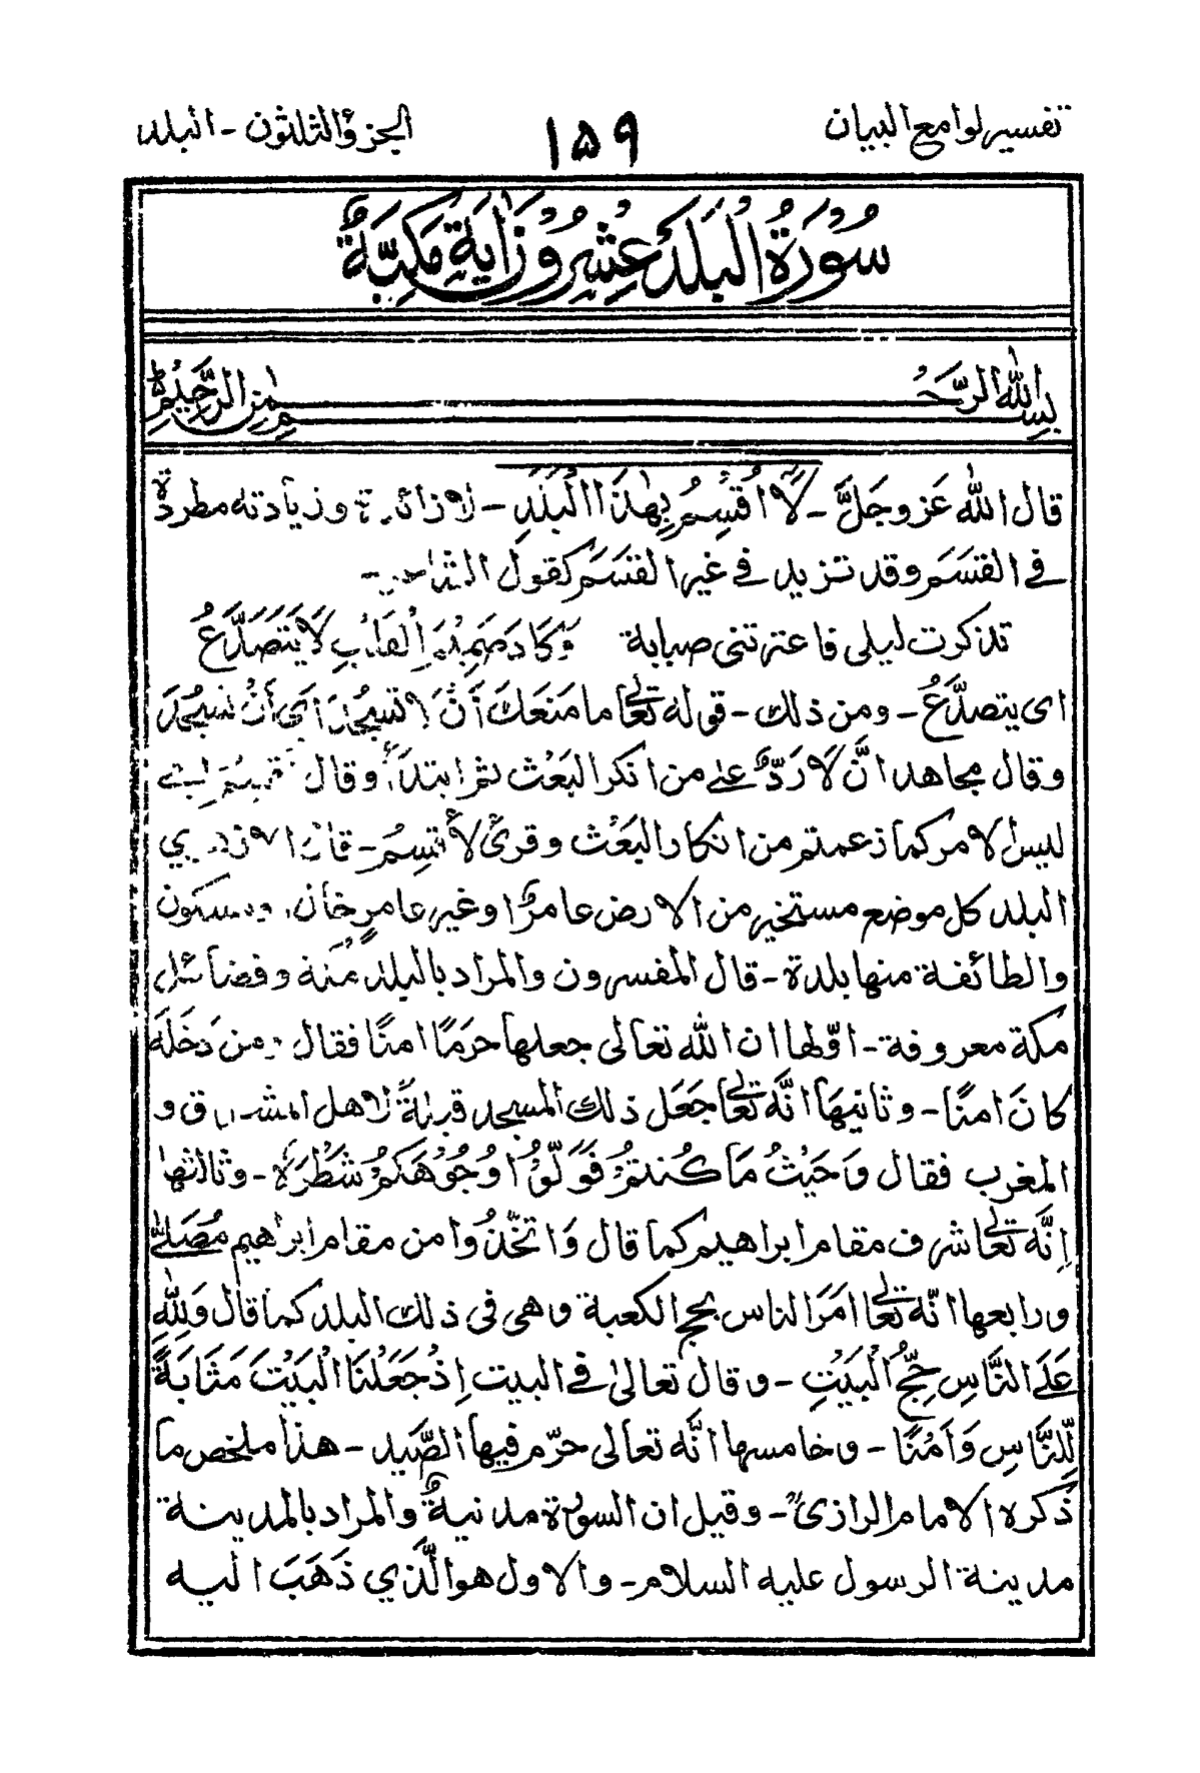 تفسير لوامع البيان
۱۵۹
الجزء الثلثون - البلد
سُوْرَةُ الْبَلَدِ عِشْرُوْنَ اٰيَةً مَكِّيَّةٌ
بِسْمِ اللهِ الرَّحْمٰنِ الرَّحِيْمِ
قال الله عَزوجَلَّ - لَا اُقْسِمُ بِهٰذَا الْبَلَدِ - لا زائدة وزيادته مطردة
في القسَم وقد تزيد في غير القسَم كقول الشاعر -
تذكرت ليلى فاعترتنى صبابة وَكَادَ صَمِيْمُ الْقَلْبِ لَا يَتَصَدَّعُ
اى يتصدَّعُ - ومن ذلك - قوله تعالى ما مَنَعَكَ اَنْ لَا تسجُدَ اَى اَنْ تسجُدَ
وقال مجاهد انَّ لَا رَدٌّ على من انكر البَعْث ثم ابتدأ وقال
ليس الامر كما زعمتم من انكار البَعْث وقرئ لَأُقسِمُ - قال الازهري
البلد كل موضع مستخير من الارض عامرًا وغير عامرٍ خان ومسكون
والطائفة منها بلدة - قال المفسرون والمراد بالبلد مكة وفضائل
مكة معروفة - اوّلها ان الله تعالى جعلها حرَمًا امنًا فقال ومن دَخَلَهٗ
كانَ امنًا - وثانيهَا انَّه تعالى جَعَل ذلك المسجد قبلةً لاهل المشرق و
المغرب فقال وَحَيْثُ مَا كُنتُمْ فَوَلُّوْا وُجُوْهَكُمْ شَطْرَهٗ - وثالثها
اِنَّه تعالى شرف مقام ابراهيم كما قال وَاتَّخِذُوا من مقام ابرٰهيم مُصَلّٰى
ورابعها انّه تعالى امَرَ الناس بحج الكعبة وهى فى ذلك البلد كما قال وَلِلّٰهِ
عَلَى النَّاسِ حِجُّ الْبَيْتِ - وقال تعالىٰ في البيت اِذْ جَعَلْنَا الْبَيْتَ مَثَابَةً
لِّلنَّاسِ وَاَمْنًا - وخامسها انَّه تعالى حرّم فيها الصَّيد - هذا ملخص ما
ذكره الامام الرازىؒ - وقيل ان السورة مدنيةٌ والمراد بالمدينة
مدينة الرسول عليه السلام - والاول هو الَّذي ذَهَبَ اليه